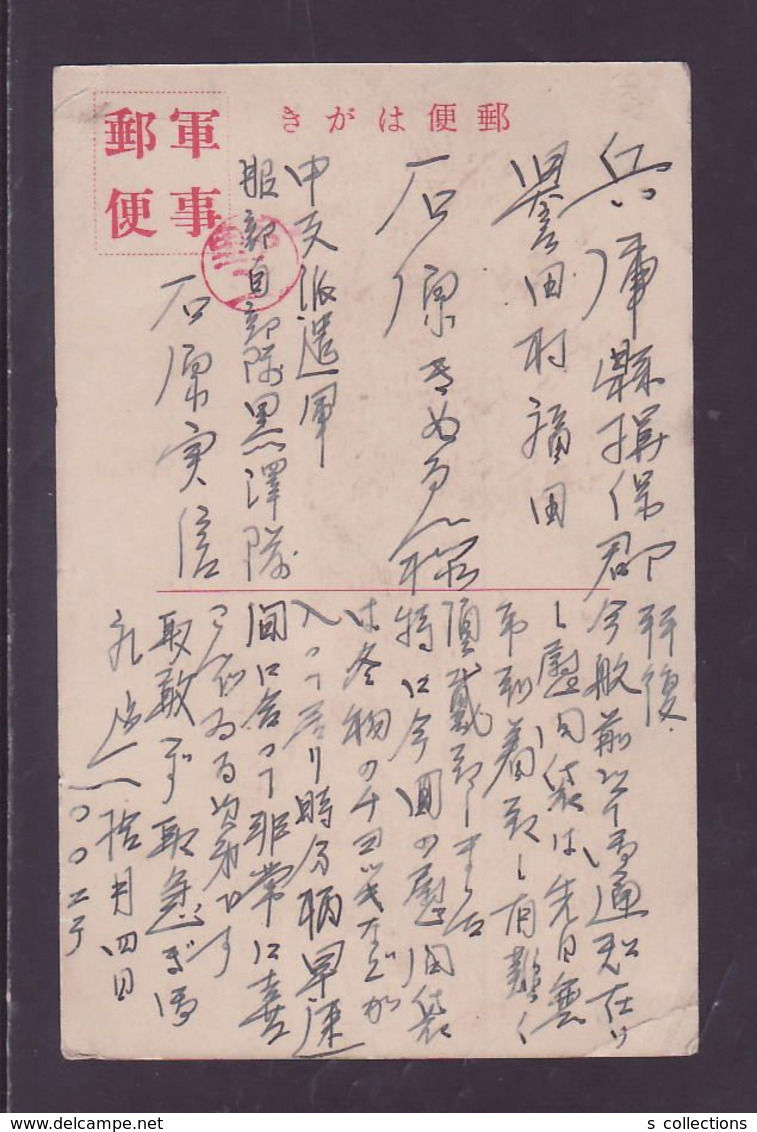 郵便はがき
軍事
郵便
兵庫縣揖保郡
誉田村福田
石原きぬゑ様
中支派遣軍
服部自部隊黒澤隊
石原実信
拝復
今般前以て御通知在り
し慰問袋は先日無
事到着致し有難く
頂戴致しました
特に今回の慰問袋
は冬物のチヨツキなどが
入って居り時分柄早速
間に合って非常に喜
んで ゐる次第です
取敢ず取急ぎ御
礼迄 拾月四日
s collections